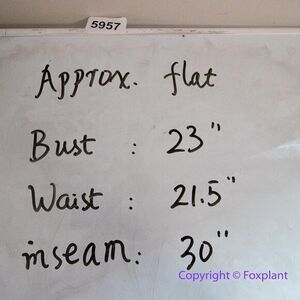 5957
Approx. flat
Bust : 23"
Waist : 21.5"
inseam: 30"
Copyright © Foxplant